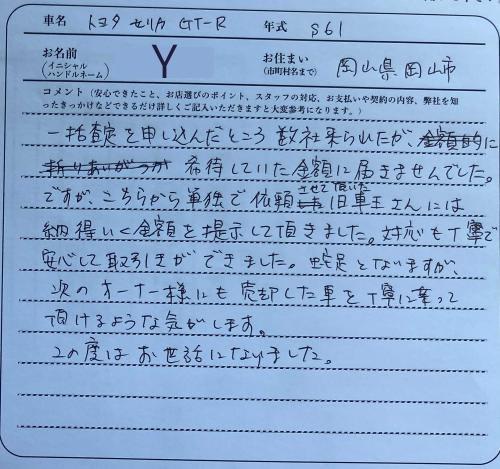 車名 トヨタ セリカ GT-R 年式 S61
お名前 (イニシャル ハンドルネーム) Y お住まい (市町村名まで) 岡山県岡山市
コメント（安心できたこと、お店選びのポイント、スタッフの対応、お支払いや契約の内容、弊社を知
ったきっかけなどできるだけ詳しくご記入いただきますと大変参考になります。）
一括査定を申し込んだところ数社来られたが、金額的に
折りあいがつか 希待していた金額に届きませんでした。
ですが、こちらから単独で依頼させて頂いた旧車王さんには
納得いく金額を提示して頂きました。対応も丁寧で
安心して取引きができました。蛇足となりますが、
次のオーナー様にも売却した車を丁寧に乗って
頂けるような気がします。
この度はお世話になりました。